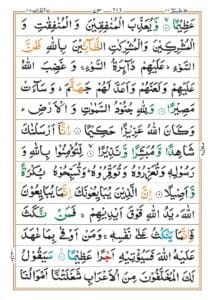 عَظِيْمًا ۙ وَّيُعَذِّبَ الْمُنٰفِقِيْنَ وَالْمُنٰفِقٰتِ وَ
الْمُشْرِكِيْنَ وَالْمُشْرِكٰتِ الظَّآنِّيْنَ بِاللّٰهِ ظَنَّ
السَّوْءِ ؕ عَلَيْهِمْ دَآئِرَةُ السَّوْءِ ۚ وَغَضِبَ اللّٰهُ
عَلَيْهِمْ وَلَعَنَهُمْ وَاَعَدَّ لَهُمْ جَهَنَّمَ ؕ وَسَآءَتْ
مَصِيْرًا وَلِلّٰهِ جُنُوْدُ السَّمٰوٰتِ وَالْاَرْضِ ؕ
وَكَانَ اللّٰهُ عَزِيْزًا حَكِيْمًا اِنَّاۤ اَرْسَلْنٰكَ
شَاهِدًا وَّمُبَشِّرًا وَّنَذِيْرًا ۙ لِّتُؤْمِنُوْا بِاللّٰهِ وَ
رَسُوْلِهٖ وَتُعَزِّرُوْهُ وَتُوَقِّرُوْهُ ؕ وَتُسَبِّحُوْهُ بُكْرَةً
وَّاَصِيْلًا اِنَّ الَّذِيْنَ يُبَايِعُوْنَكَ اِنَّمَا يُبَايِعُوْنَ
اللّٰهَ ؕ يَدُ اللّٰهِ فَوْقَ اَيْدِيْهِمْ ۚ فَمَنْ نَّكَثَ
فَاِنَّمَا يَنْكُثُ عَلٰى نَفْسِهٖ ۚ وَمَنْ اَوْفٰى بِمَا عٰهَدَ
عَلَيْهُ اللّٰهَ فَسَيُؤْتِيْهِ اَجْرًا عَظِيْمًا سَيَقُوْلُ
لَكَ الْمُخَلَّفُوْنَ مِنَ الْاَعْرَابِ شَغَلَتْنَاۤ اَمْوَالُنَا